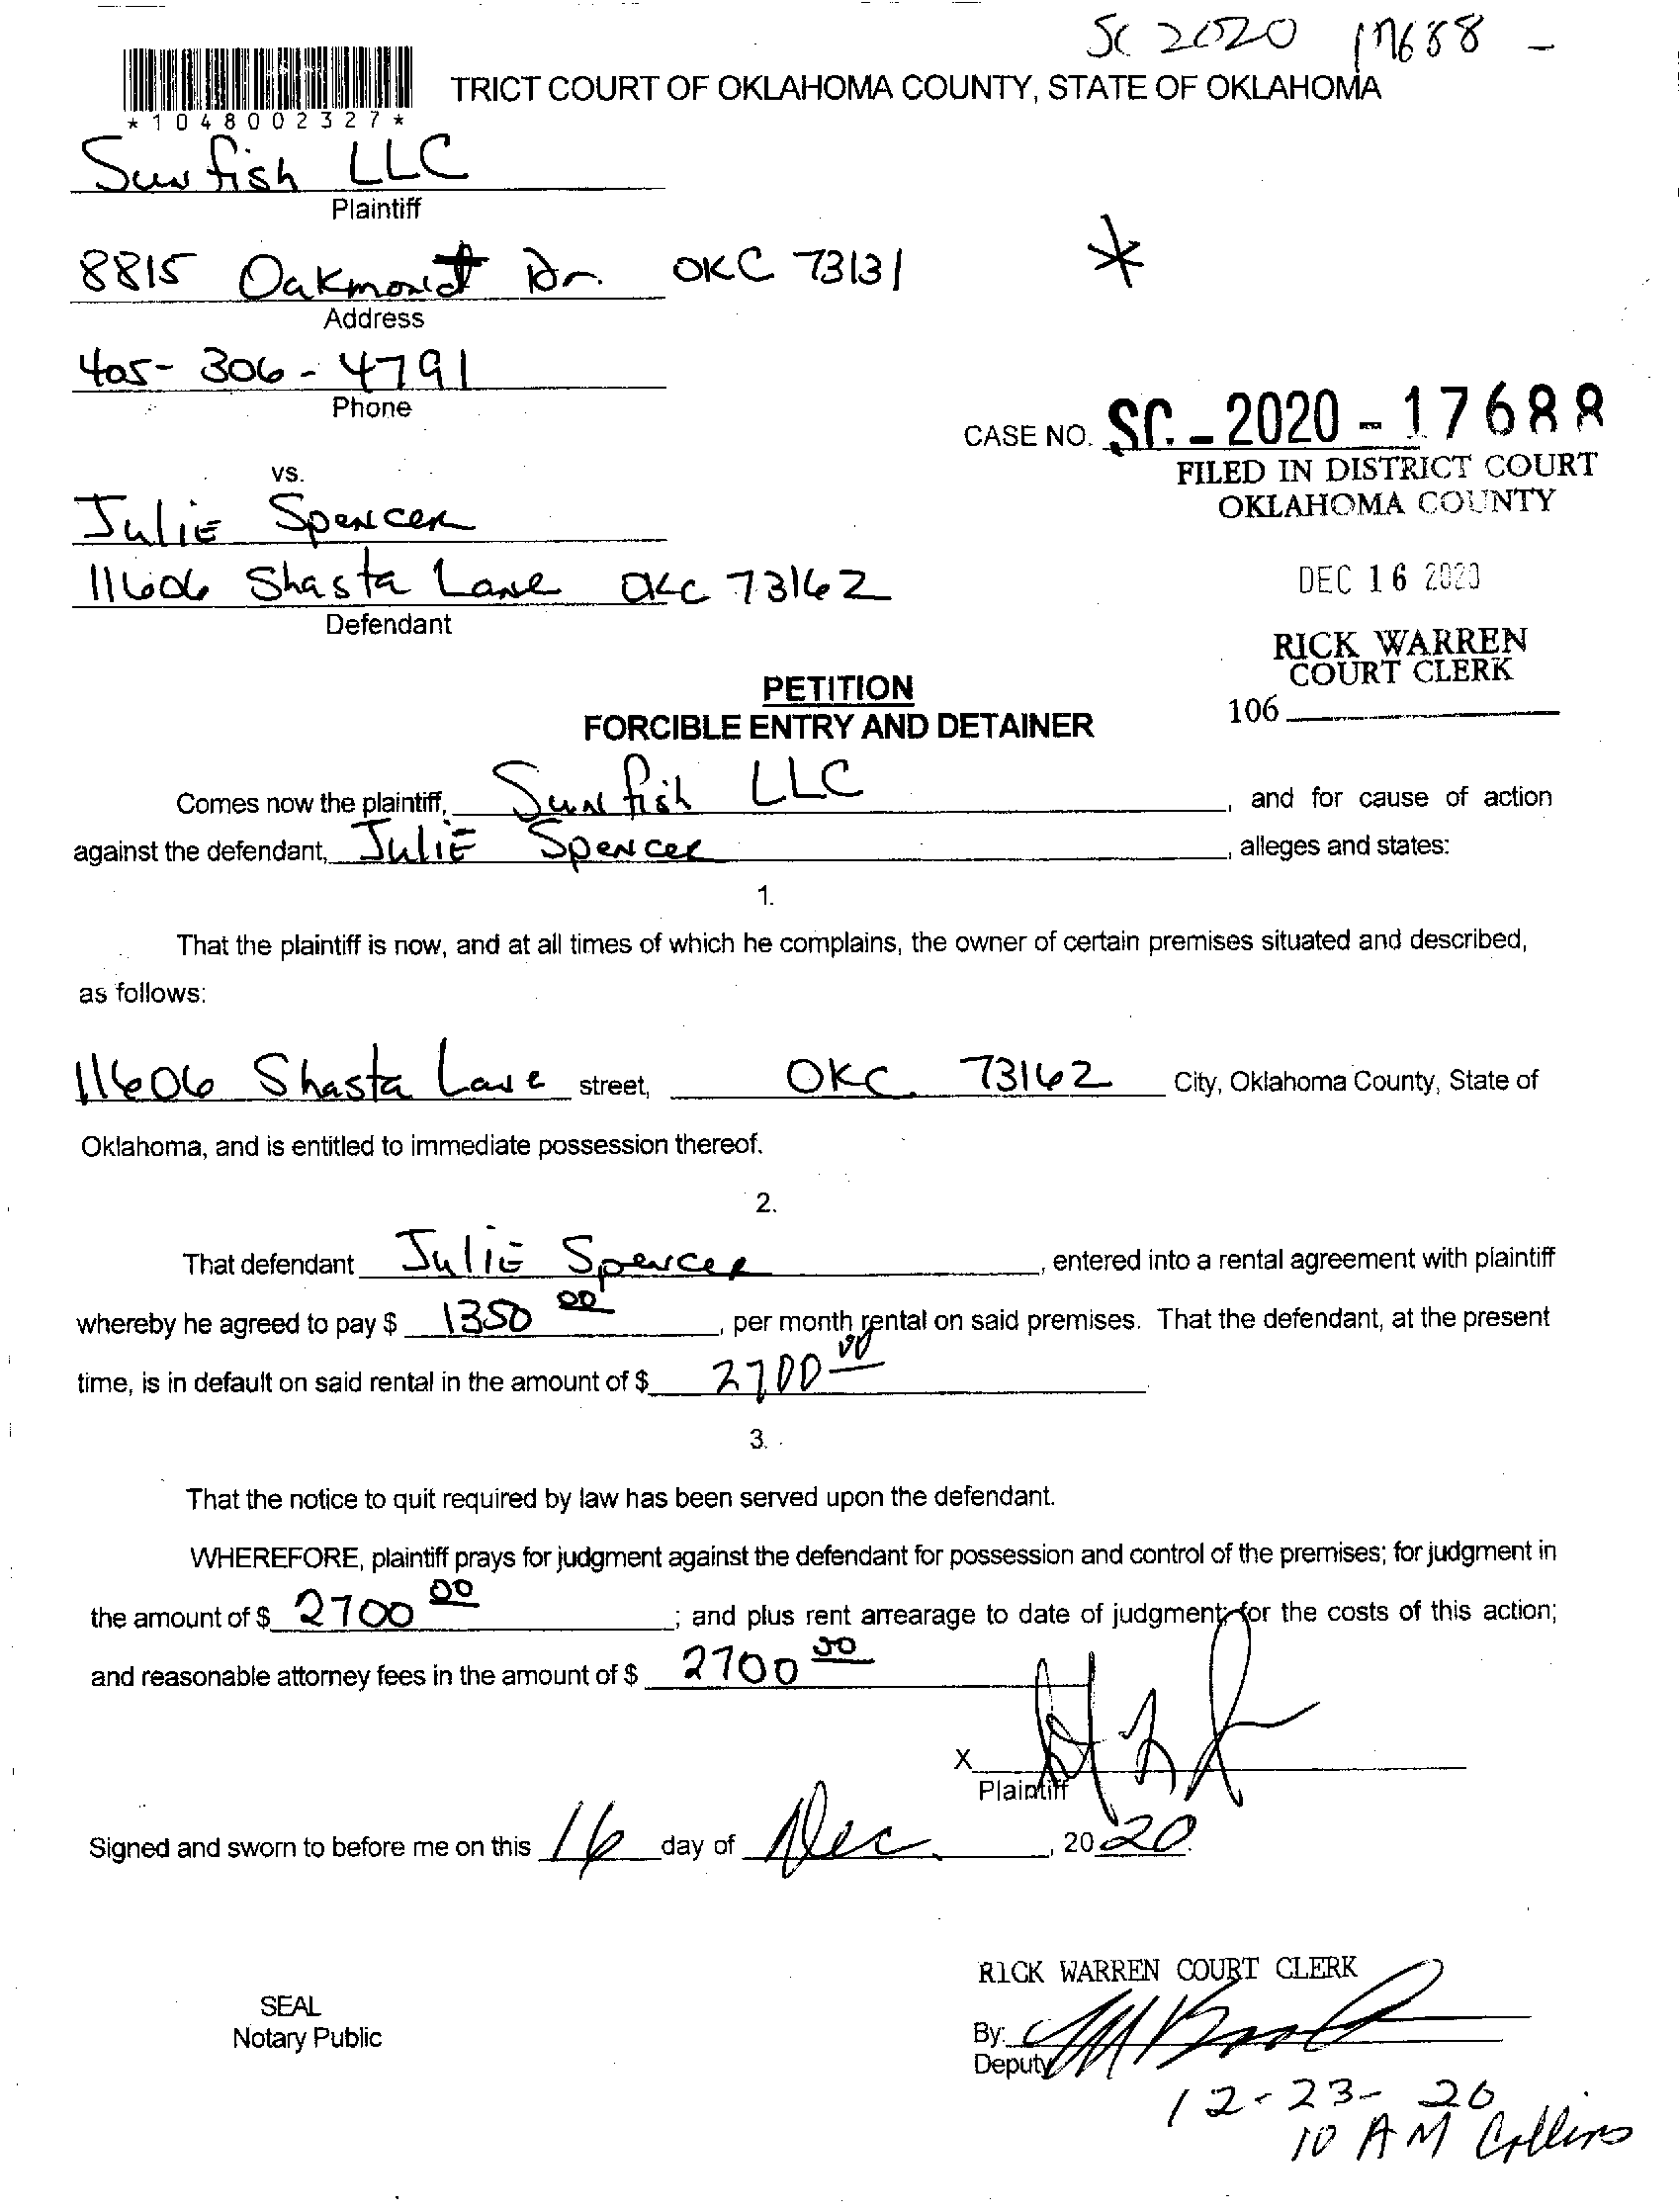 SC 2020 17688 -
TRICT COURT OF OKLAHOMA COUNTY, STATE OF OKLAHOMA
*1048002327*
Sunfish LLC
Plaintiff
8815 Oakmont Dr. OKC 73131
*
Address
405-306-4791
Phone
CASE NO. SC - 2020 - 17688
FILED IN DISTRICT COURT
OKLAHOMA COUNTY
vs.
Julie Spencer
11606 Shasta Lane OKC 73162
DEC 16 2020
Defendant
RICK WARREN
COURT CLERK
106
PETITION
FORCIBLE ENTRY AND DETAINER
Comes now the plaintiff, Sunfish LLC, and for cause of action
against the defendant, Julie Spencer, alleges and states:
1.
That the plaintiff is now, and at all times of which he complains, the owner of certain premises situated and described,
as follows:
11606 Shasta Lane street, OKC 73162 City, Oklahoma County, State of
Oklahoma, and is entitled to immediate possession thereof.
2.
That defendant Julie Spencer, entered into a rental agreement with plaintiff
whereby he agreed to pay $ 1350 00, per month rental on said premises. That the defendant, at the present
time, is in default on said rental in the amount of $ 2700 00
3.
That the notice to quit required by law has been served upon the defendant.
WHEREFORE, plaintiff prays for judgment against the defendant for possession and control of the premises; for judgment in
the amount of $ 2700 00; and plus rent arrearage to date of judgment; for the costs of this action;
and reasonable attorney fees in the amount of $ 2700 00
X
Plaintiff
Signed and sworn to before me on this 16 day of Dec., 20 20.
RICK WARREN COURT CLERK
SEAL
Notary Public
By:
Deputy
12-23-20
10 AM Collins